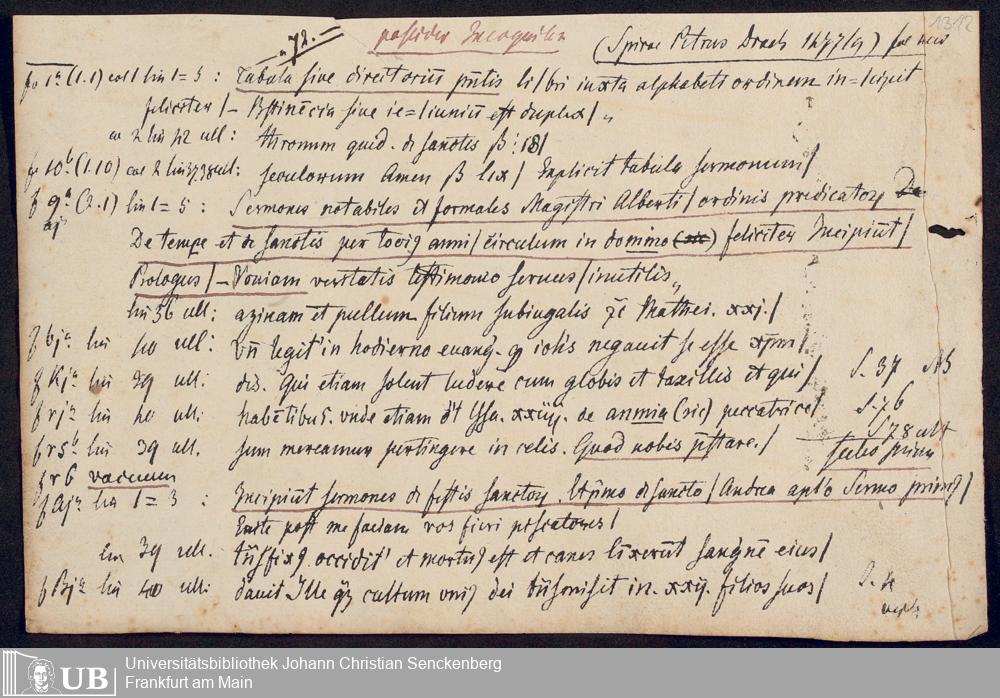 72.
(Spirae Petrus Drach 1477/9)
1312
(1.1) col 1 lin 1=5 : Tabula sive directoriū pñtis li/bri iuxta alphabeti ordinem in=/cipit
feliciter/ – Abstinēcia sive ie=/iuniū est duplex/
lin 42 ult: thronum quid. di sanctis
10b (1.10) col 2 lin 37.38 ult: seculorum Amen lix/ Explicit tabula sermonum/
(2.1) lin 1=5 : Sermones notabiles et formales Magistri Alberti/ ordinis predicatoꝝ
De tempe et de sanctis per totiꝰ anni/ circulum in domino (sic) feliciter Incipiūt/
Prologus/ – Voniam veritatis testimonio servus/ inutilis
lin 36 ult: azinam et pullum filium subiugalis ⁊c̄ Mathei. xxj./
lin 40 ult: legit' in hodierno euang. negauit se esse xp̄m/
lin 39 ult: dis. Qui etiam solent ludere cum globis et taxillis et qui/ S. 37
lin 40 ult: habētibus. vnde etiam d't Ysa. xxiij. de anmia (sic) peccatrice/ S. 76
r5b lin 39 ult. sum mereamur pertingere in celis. Quod nobis p̄stare./ S 78 ult
r6 vacuum
lin 1=3 : Incipiūt sermones de festis sanctoꝝ. Et p̄mo de sancto/ Andrea apl'o Sermo primꝰ/
Enite post me faciam vos fieri piscatores/
lin 39 ult. occidit' et mortuꝰ est et canes lixerūt sangnē eius/
lin 40 ult: dauit Ille cultum vniꝰ dei in. xxij. filios suos/
Universitätsbibliothek Johann Christian Senckenberg
Frankfurt am Main
UB